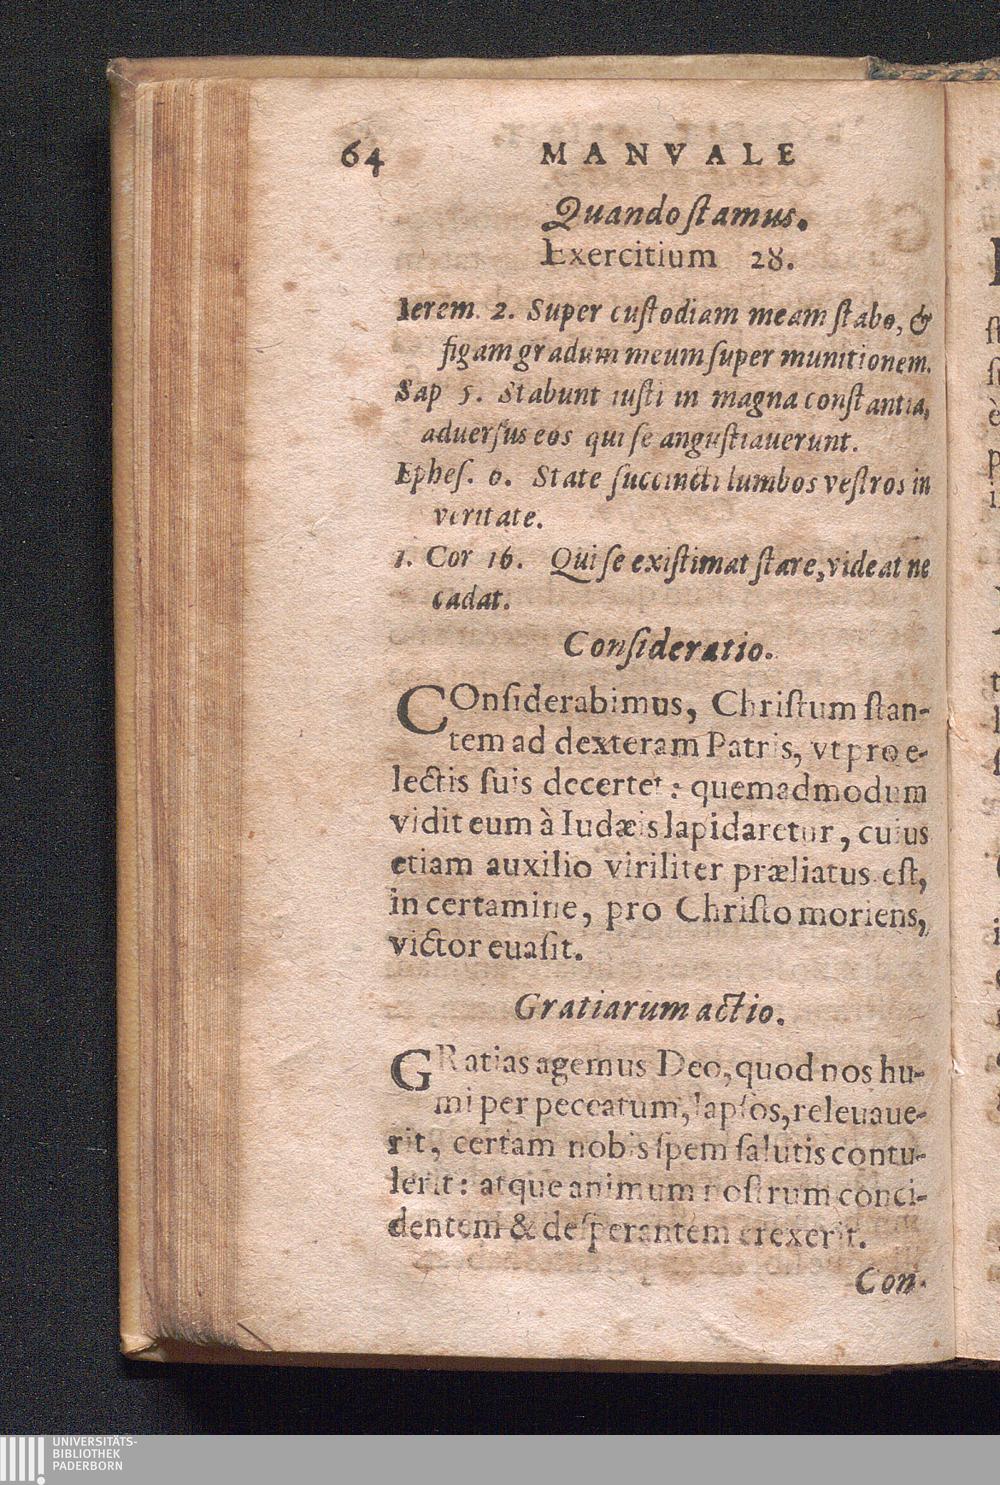 64 MANVALE
Quando ſtamus.
Exercitium 28.
Ierem. 2. Super cuſtodiam meam ſtabo, &
figam gradum meum ſuper munitionem.
Sap 5. Stabunt iuſti in magna conſtantia,
aduerſus eos qui ſe anguſtiauerunt.
Epheſ. 6. State ſuccincti lumbos veſtros in
veritate.
1. Cor 16. Qui ſe exiſtimat ſtare, videat ne
cadat.
Conſideratio.
COnſiderabimus, Chriſtum ſtan-
tem ad dexteram Patris, vt pro e-
lectis ſuis decertet: quemadmodum
vidit eum à Iudæis lapidaretur, cuius
etiam auxilio viriliter præliatus eſt,
in certamine, pro Chriſto moriens,
victor euaſit.
Gratiarum actio.
GRatias agemus Deo, quod nos hu-
mi per peccatum, lapſos, releuaue-
rit, certam nobis ſpem ſalutis contu-
lerit: atque animum noſtrum conci-
dentem & deſperantem erexerit.
Con-
UNIVERSITÄTS-
BIBLIOTHEK
PADERBORN